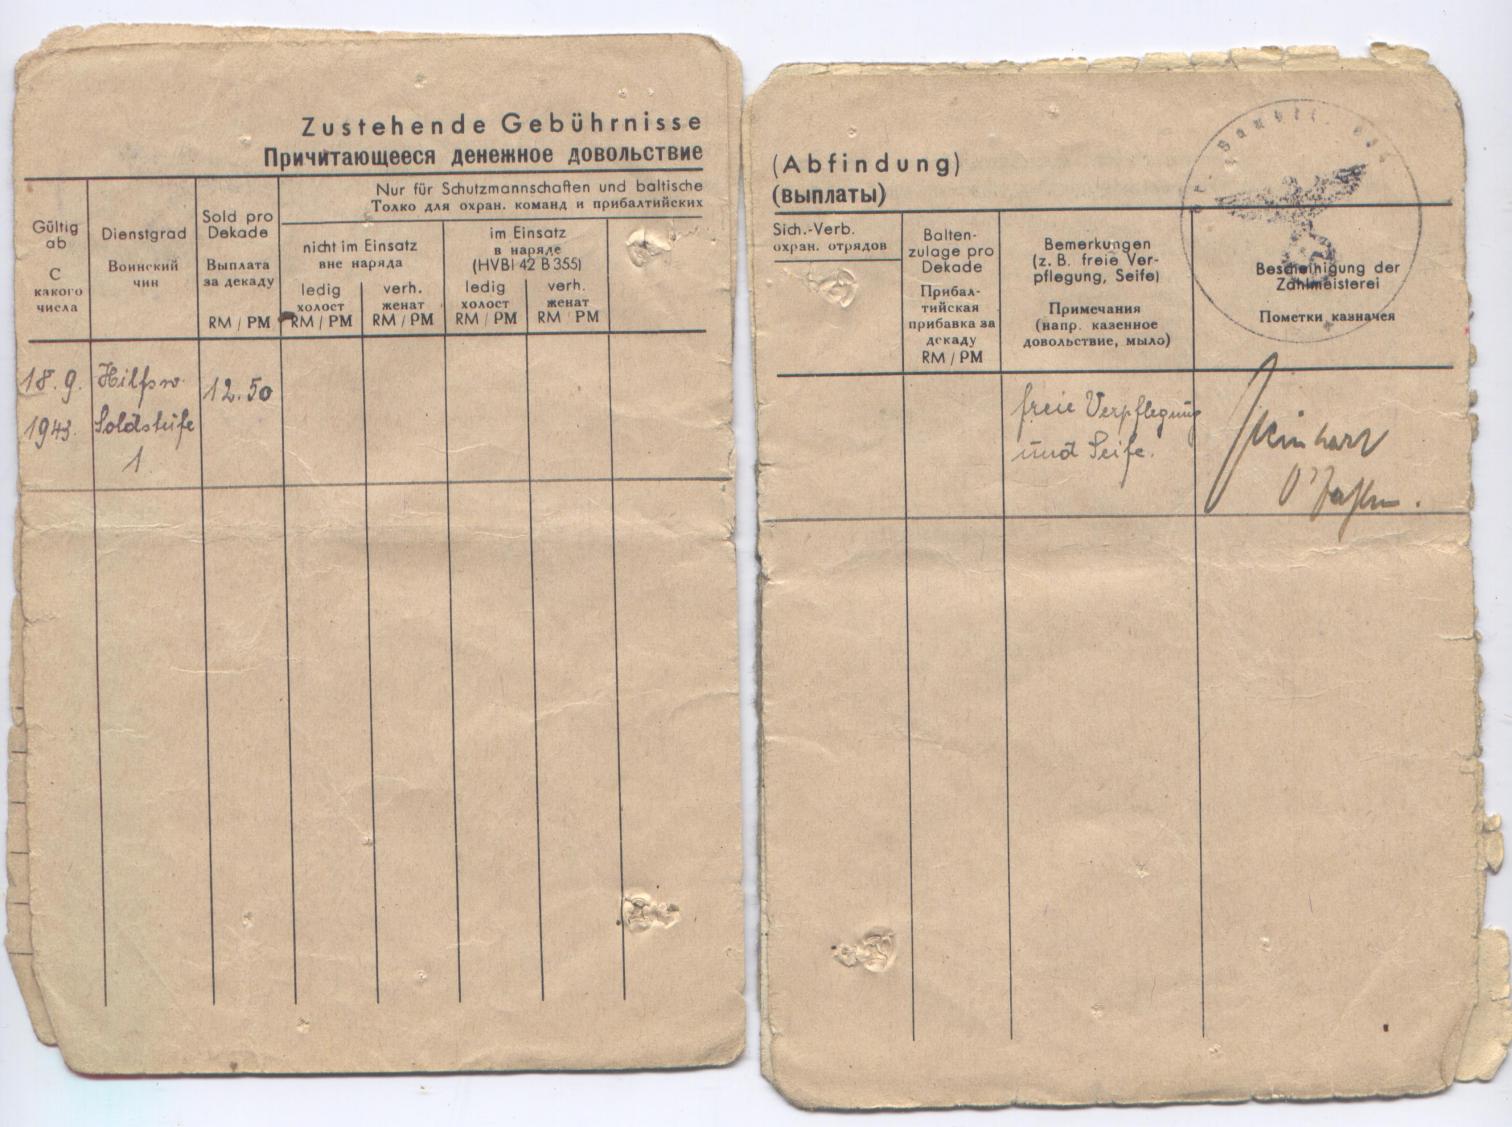 Zustehende Gebührnisse
Причитающееся денежное довольствие
Nur für Schutzmannschaften und baltische
Только для охран. команд и прибалтийских
Gültig
ab
С
какого
числа
Dienstgrad
Воинский
чин
Sold pro
Dekade
Выплата
за декаду
RM / РМ
nicht im Einsatz
вне наряда
ledig
холост
RM / РМ
verh.
женат
RM / РМ
im Einsatz
в наряде
(HVBl 42 B 355)
ledig
холост
RM / РМ
verh.
женат
RM РМ
18. 9.
1943.
Hilfsw.
Soldstufe
1
12.50
(Abfindung)
(выплаты)
Sich.-Verb.
охран. отрядов
Balten-
zulage pro
Dekade
Прибал-
тийская
прибавка за
декаду
RM / РМ
Bemerkungen
(z. B. freie Ver-
pflegung, Seife)
Примечания
(напр. казенное
довольствие, мыло)
Bescheinigung der
Zahlmeisterei
Пометки казначея
freie Verpflegung
und Seife.